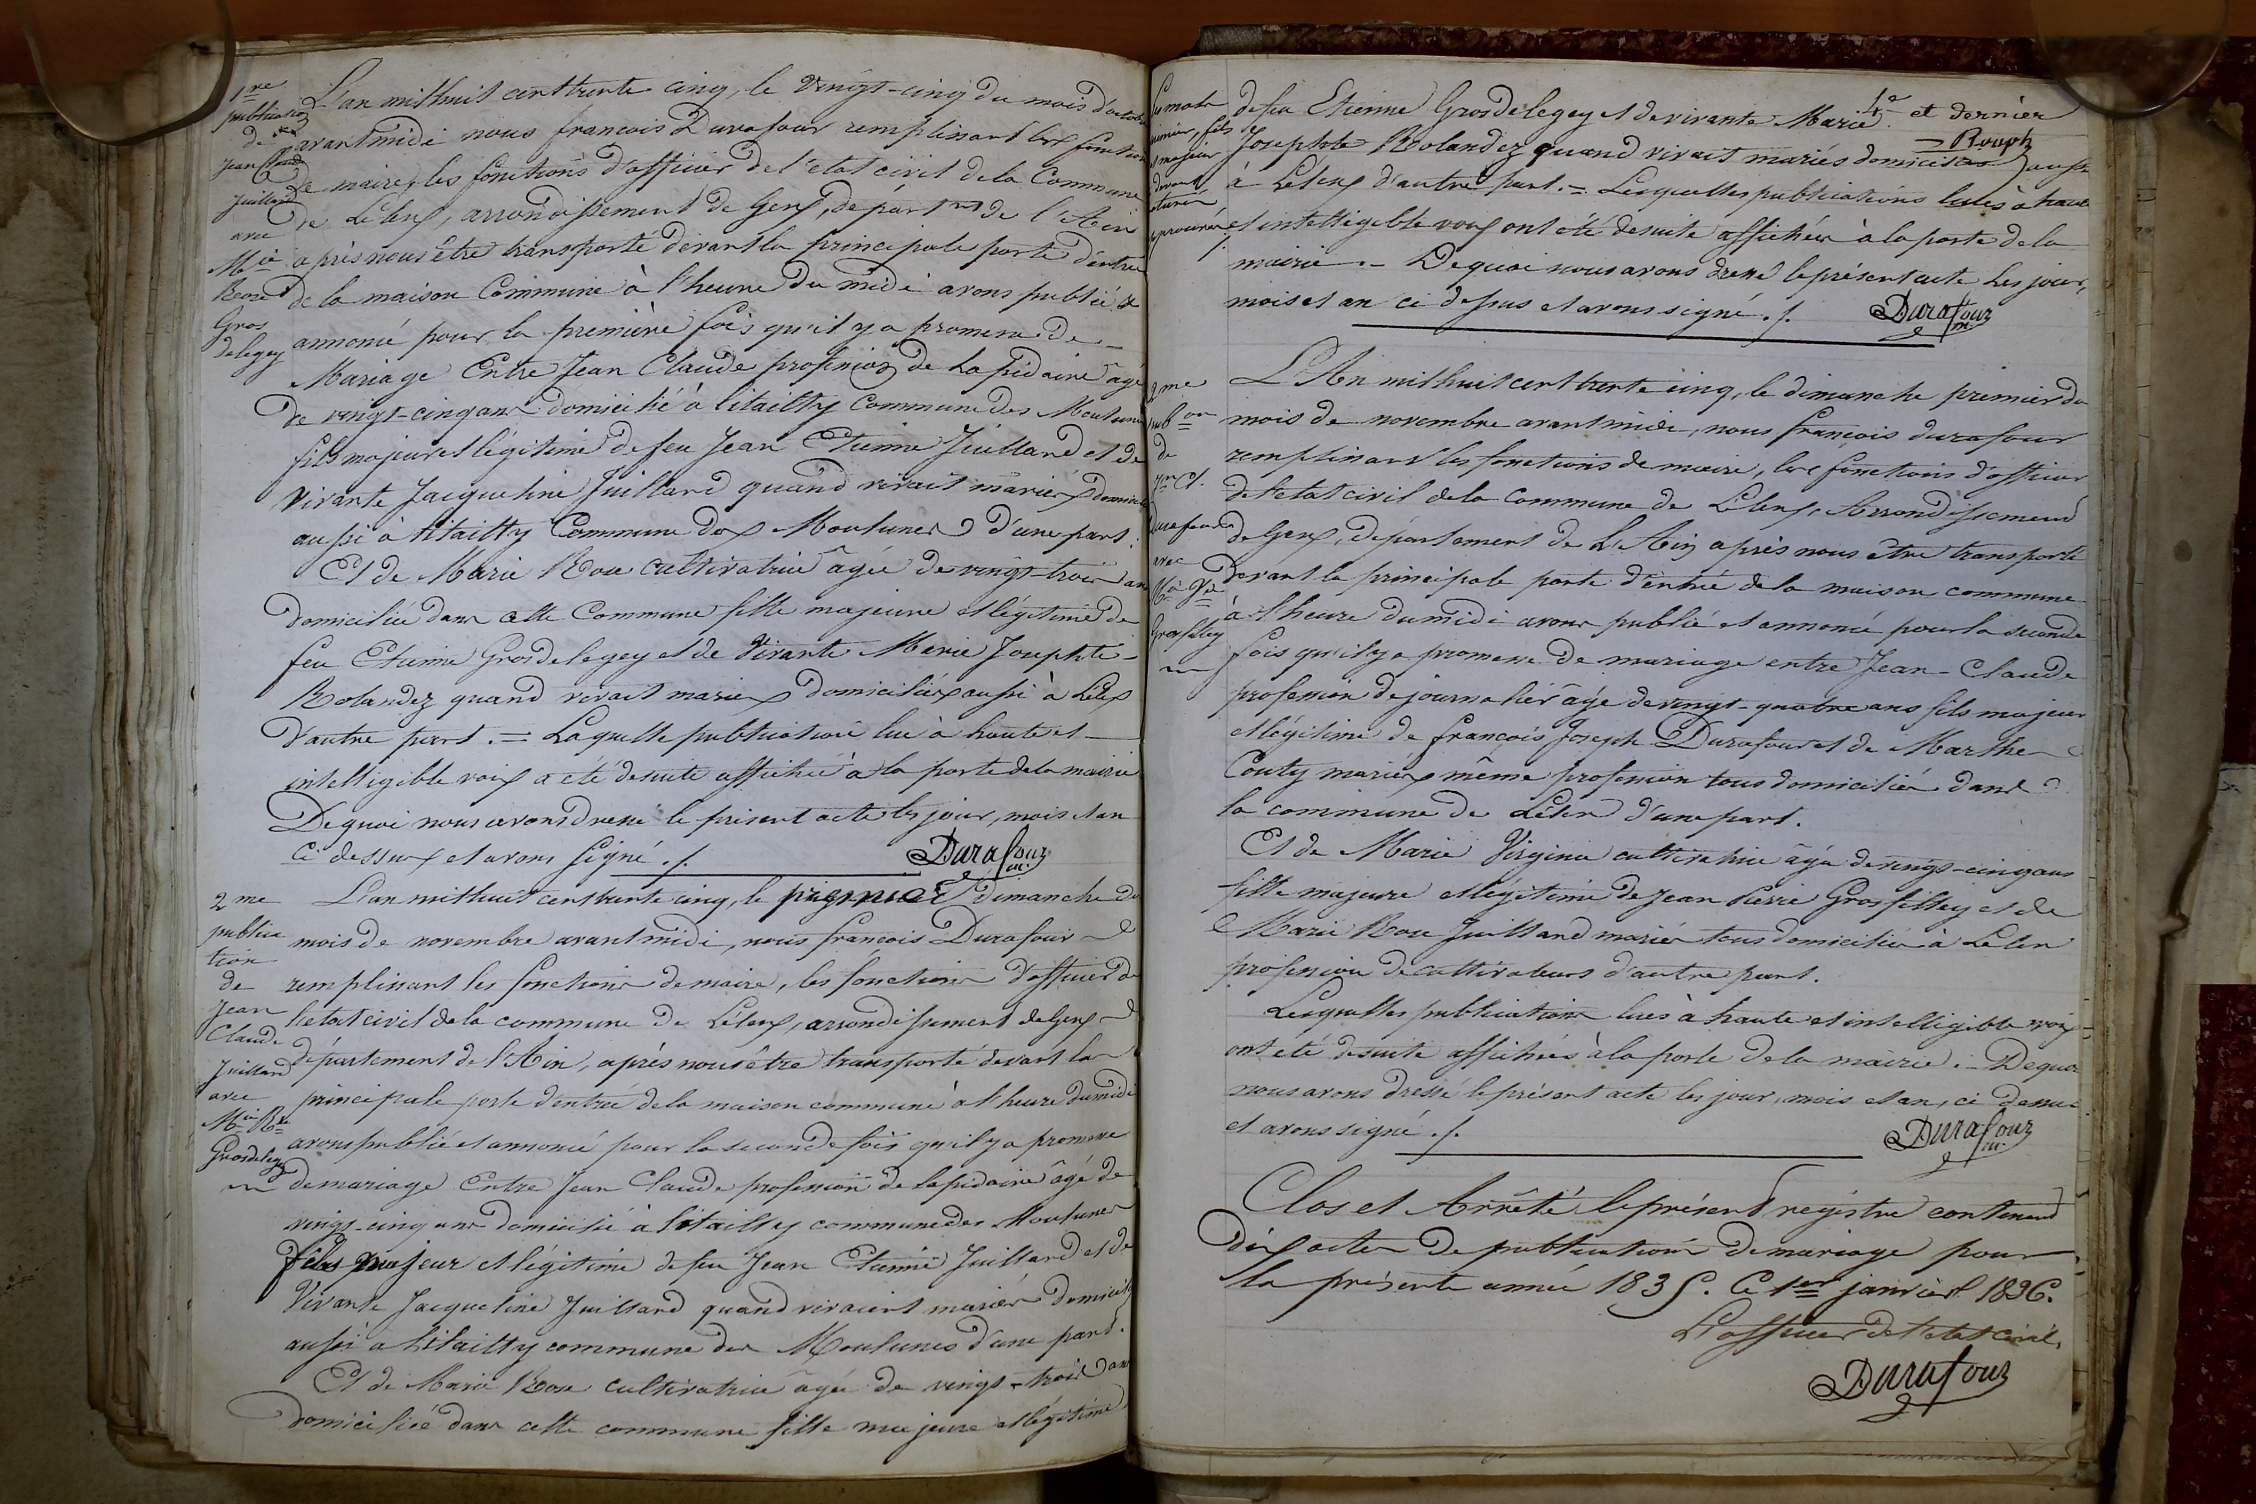 1re
publication
de
Jean Claude
Juilland
avec
Mie
Rose
Gros
delegey
L'an mil huit cent trente cinq, le vingt-cinq du mois d'octobre
avant midi nous francois Durafour remplissant les fonctions
de maire, les fonctions d'officier de l'etat civil de la Commune
de Lélex, arrondissement de Gex, départmt de l'Ain
après nous être transporté devant la principale porte d'entrée
de la maison Commune à l'heure du midi avons publié &
annoncé pour la première fois qu'il y a promesse de
Mariage Entre Jean Claude profession de Lapidaire âgé
de vingt-cinq ans domicilié à Litailly Commune des Moulunes
fils majeur et légitime de feu Jean Etienne Juilland et de
vivante Jacqueline Juilland quand vivait mariés domiciliés
aussi à Litailly Commune des Moulunes d'une part.
Et de Marie Rose cultivatrice âgée de vingt-trois ans
domiciliée dans cette Commune fille majeure et légitime de
feu Etienne Grosdelegey et de Vivante Marie Josephte
Rolandez quand vivait mariés domiciliés aussi à Lélex
d'autre part. = Laquelle publication lue à haute et
intelligible voix a été desuite affichée à la porte de la mairie
De quoi nous avons dressé le présent acte les jour, mois et an
Ci dessus et avons signé ./. Durafour
m.
2me
publica
tion
de
Jean
Claude
Juilland
avec
Mie Rse
Grosdelegey
L'an mil huit cent trente cinq, le premier dimanche du
mois de novembre avant midi, nous francois Durafour
remplissant les fonctions de maire, les fonctions d'officier de
l'etat civil de la commune de Lélex, arrondissement de Gex
département de l'Ain, après nous être transporté devant la
principale porte d'entrée de la maison commune à l'heure du midi
avons publié et annoncé pour la seconde fois qu'il y a promesse
de mariage Entre Jean Claude profession de lapidaire âgé de
vingt-cinq ans domicilié à Litailly commune des Moulunes
fils majeur et légitime de feu Jean Etienne Juilland et de
Vivante Jacqueline Juilland quand vivaient mariés domiciliés
aussi à Litailly commune des Moulunes d'une part.
Et de Marie Rose cultivatrice âgée de vingt-trois ans
domiciliée dans cette commune fille majeure et légitime
4e et dernier
Rouph
de feu Etienne Grosdelegey et de vivante Marie
Josephte Rolandez quand vivait mariés domiciliés aussi
à Lélex d'autre part. = Lesquelles publications lues à haute
et intelligible voix ont été desuite affichées à la porte de la
mairie. — De quoi nous avons dressé le présent acte Les jour,
mois et an ci dessus et avons signé ./. Durafour
m.
2me
pubon
de
Jn Cl.
Durafour
avec
Mie Vie
Grosfilley
L'An mil huit cent trente cinq, le dimanche premier du
mois de novembre avant midi, nous françois durafour
remplissant les fonctions de maire, les fonctions d'officier
de l'etat civil de la Commune de Lélex, Arrondissement
de Gex, département de L'Ain après nous être transporté
devant la principale porte d'entrée de la maison commune
à l'heure du midi avons publié et annoncé pour la seconde
fois qu'il y a promesse de mariage entre Jean-Claude
profession de journalier âgé de vingt-quatre ans fils majeur
et légitime de françois Joseph Durafour et de Marthe
Couty mariés même profession tous domiciliés dans
la commune de Lélex d'une part.
Et de Marie Virginie cultivatrice âgée de vingt-cinq ans
fille majeure et légitime de Jean Pierre Grosfilley et de
Marie Rose Juilland mariés tous domiciliés à Lélex
profession de cultivateurs d'autre part.
Lesquelles publications lues à haute et intelligible voix
ont été desuite affichées à la porte de la mairie. - De quoi
nous avons dressé le présent acte les jour, mois et an, ci dessus
et avons signé ./. Durafour
m.
Clos et Arrêté le présent régistre contenant
dix actes de publications de mariage pour
la présente année 1835. Ce 1er janvier 1836.
L'officier de l'etat civil,
Durafour